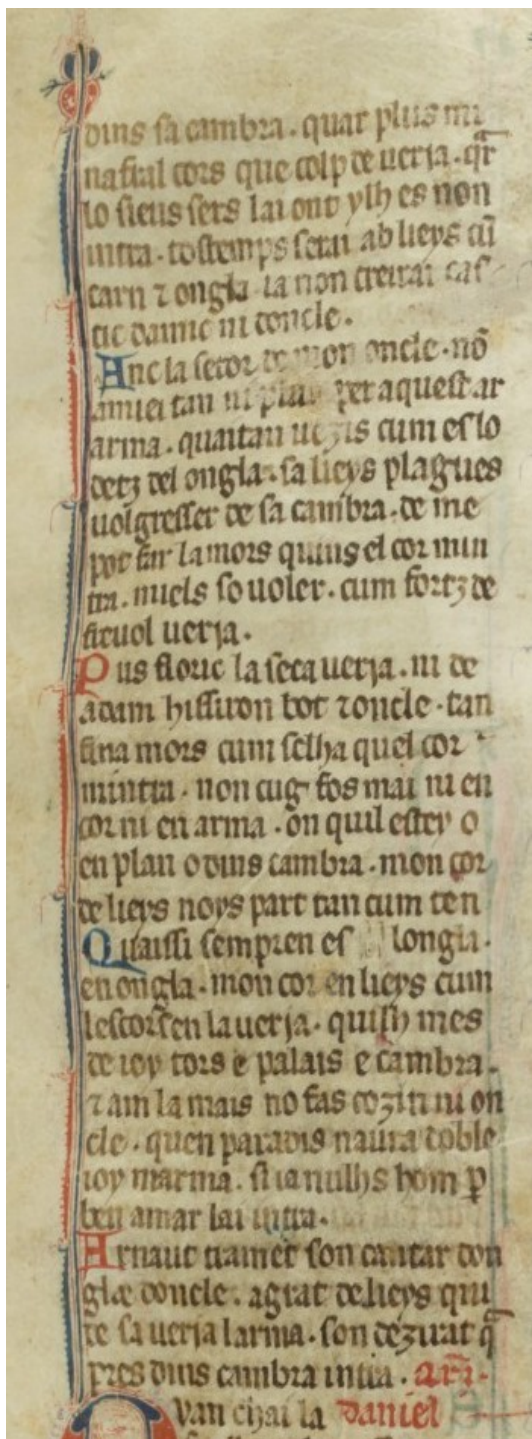 dins sa cambra. quar plus mi
nafral cors que colp de uerja. qr
lo sieus sers lai ont ylh es non
intra. tostemps serai ab lieys cū
carn ⁊ ongla ia non creirai cas
tic damic ni doncle.
Anc la seror de mon oncle. nō
amiei tan ni plus per aquest ar
arma. quaitan uezis cum es lo
detz del ongla. sa lieys plagues
uolgresser de sa cambra. de me
pot far lamors quins el cor min
tra. miels so uoler. cum fortz de
friuol uerja.
Pus floric la seca uerja. ni de
adam hissiron bot ⁊oncle. tan
fina mors cum selha quel cor
mintra. non cug fos mai ni en
cor ni en arma. on quil estey o
en plan o dins cambra. mon cor
de lieys noys part tan cum ten
Quaissi sempren es longla.
en ongla. mon cor en lieys cum
lescorsen la uerja. quilh mes
de ioy tors e palais e cambra.
⁊am la mais no fas cozin ni on
cle. quen paradis naura doble
ioy marma. si ia nulhs hom p
ben amar lai intra.
Arnaut tramet son cantar don
gla doncle. agrat de lieys qui
de sa uerja larma. son dezirat q̄
pres dins cambra intra. arn̄.
van chai la Daniel